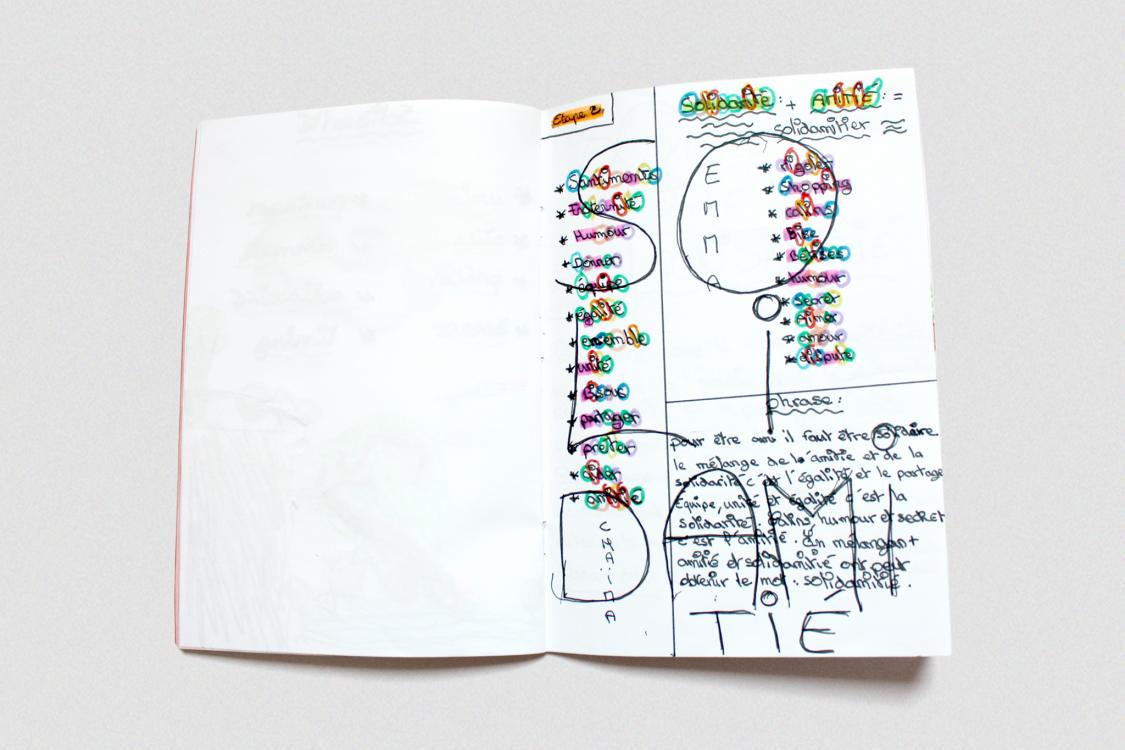 Etape 2
* Santiments
* Fraternité
* Humour
* Donner
* équipe
* égalité
* ensemble
* unité
* Bisous
* partager
* prêter
* aider
* amitié
CHAÏMA
Solidarité : + Amitié : =
solidamitier
EMMA
* rigoler
* shopping
* calins
* Bise
* Bêtises
* humour
* secret
* aimer
* amour
* dispute
phrase :
pour être ami il faut être solidaire.
le mélange de l'amitié et de la
solidarité c'est l'égalité et le partage
Equipe, unité et égalité c'est la
solidarité. Calins humour et secret
c'est l'amitié. En mélangant
amitié et solidamitié ont peut
obtenir le mot : solidamitié.
SOLIDAMITIÉ